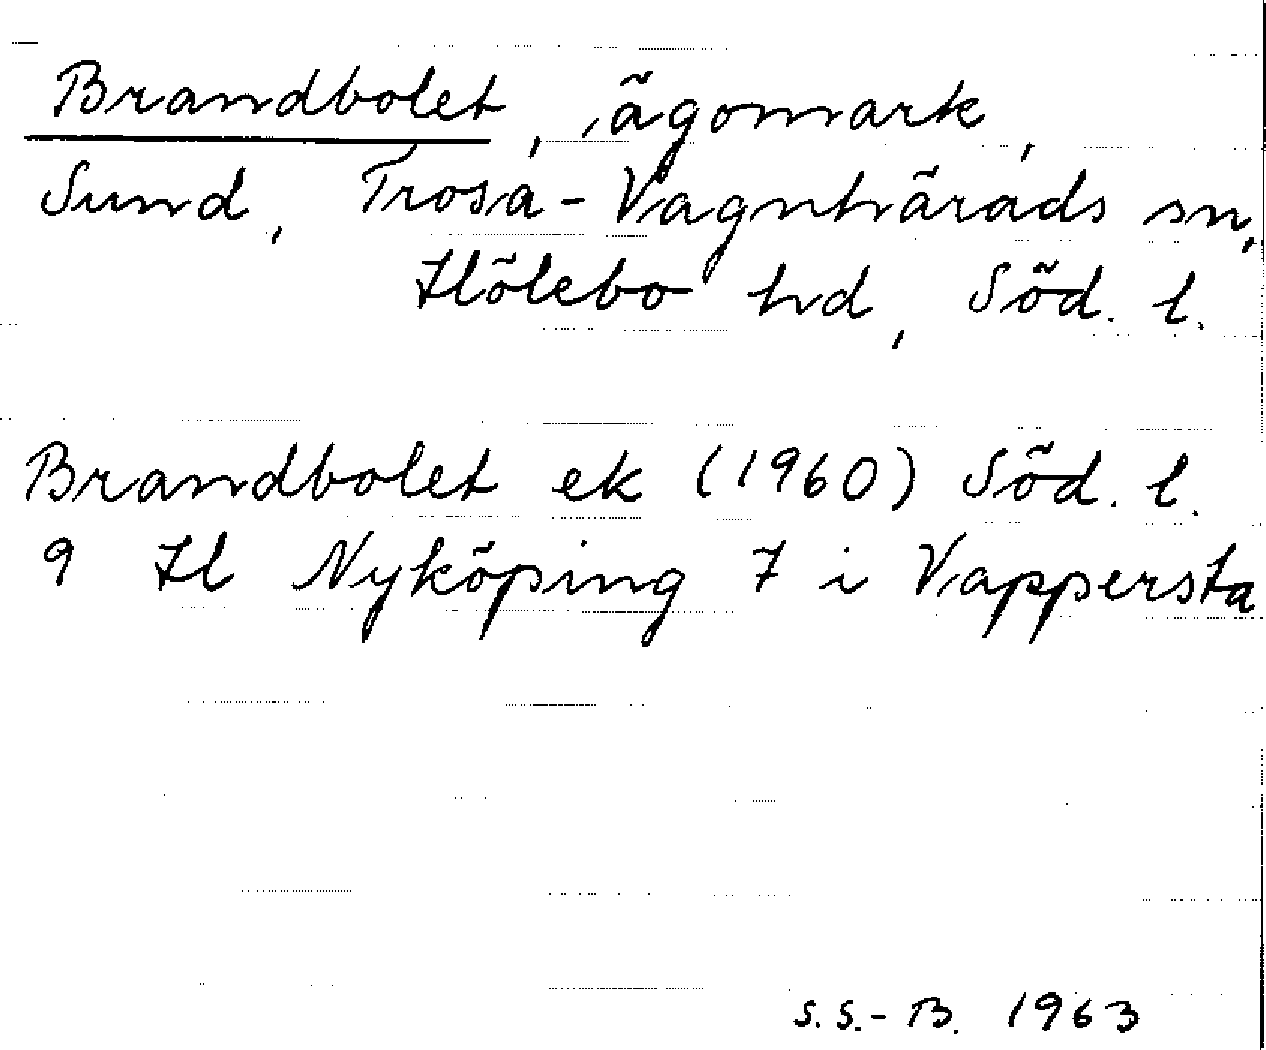 Brandbolet, ägomark,
Sund, Trosa-Vagnhärads sn,
Hölebo hd, Söd. l.
Brandbolet ek (1960) Söd. l.
9 Hl Nyköping 7 i Vappersta
S.S.-B. 1963